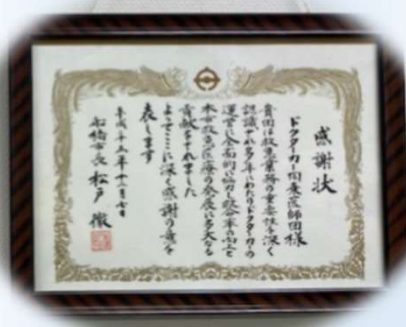 感謝状
ドクターカー同乗医師団様
貴団は救急業務の重要性を深く
認識され多年にわたりドクターカーの
運営に全面的に協力し救命率の向上と
本市救急医療の発展に多大なる
貢献をされました
よってここに深く感謝の意を
表します
平成十五年十二月七日
船橋市長 松戸 徹